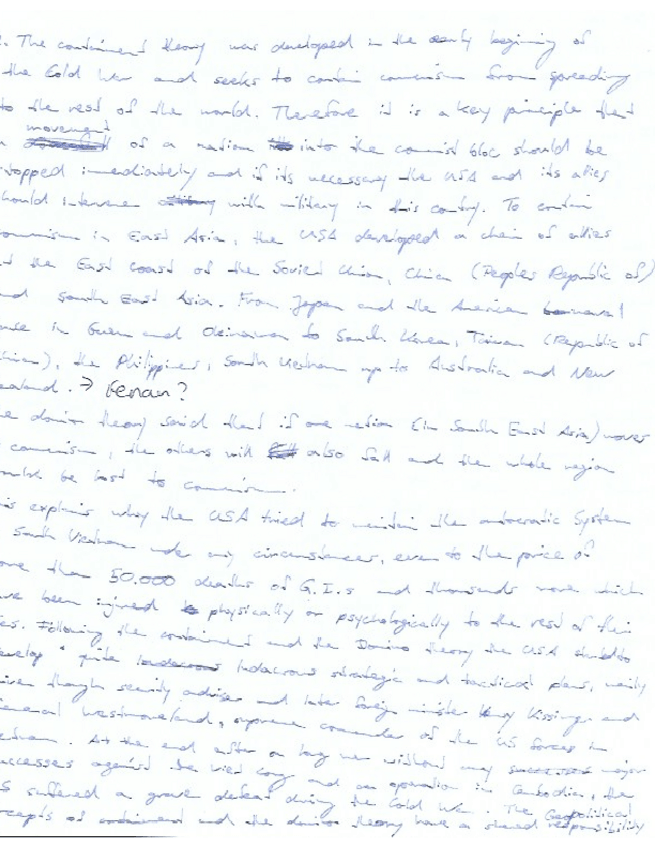 . The containment theory was developed in the early beginning of
the Cold War and seeks to contain comunism from spreading
to the rest of the world. Therefore it is a key principle that
movement
of a nation into the comunist bloc should be
topped imediately and if its necessary the USA and its allies
hould intervene with military in this contry. To contain
omunism in East Asia, the USA developed a chain of allies
t the East coast of the Soviet Union, China (Peoples Republic of)
nd South East Asia. From Japan and the American
in Guam and Okinawa to South Korea, Taiwan (Republic of
hina), the Philippines, South Vietnam up to Australia and New
ealand. → Kennan?
e domino theory said that if one nation (in South East Asia) moves
comunism, the others will also fall and the whole region
be lost to comunism.
is explains why the USA tried to maintain the autocratic System
South Vietnam under any circumstances, even to the price of
ore than 50.000 deaths of G.I.s and thousands more which
ve been injured physically or psychologically to the rest of their
es. Following the containment and the Domino theory the USA started to
evelop quite ludacrous strategic and tactical plans, mainly
iven though security adviser and later foreign minister Henry Kissinger and
eneral Westmoreland, supreme comander of the US forces in
etnam. At the end after a long war without any major
uccesses against the Viet cong and an operation in Cambodia, the
S suffered a grave defeat during the Cold War. The Geopolitical
ncepts of containment and the domino theory have a shared responsibility